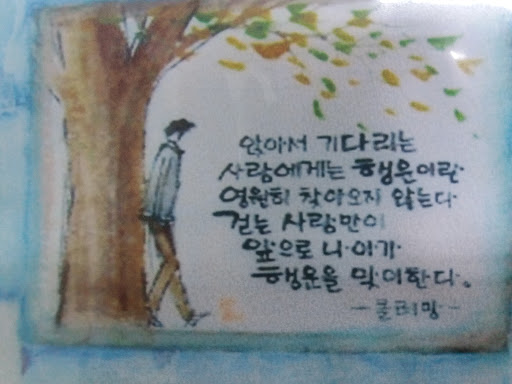 앉아서 기다리는
사람에게는 행운이란
영원히 찾아오지 않는다
걷는 사람만이
앞으로 나아가
행운을 맞이한다.
-클레망-